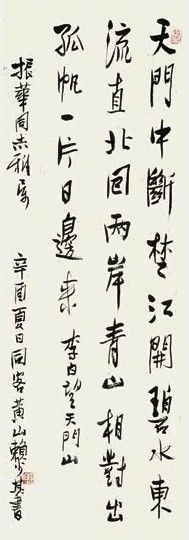 天門中斷楚江開碧水東
流直北回兩岸青山相對出
孤帆一片日邊來 李白望天門山
振華同志補壁
辛酉夏日同客黃山賴少其書